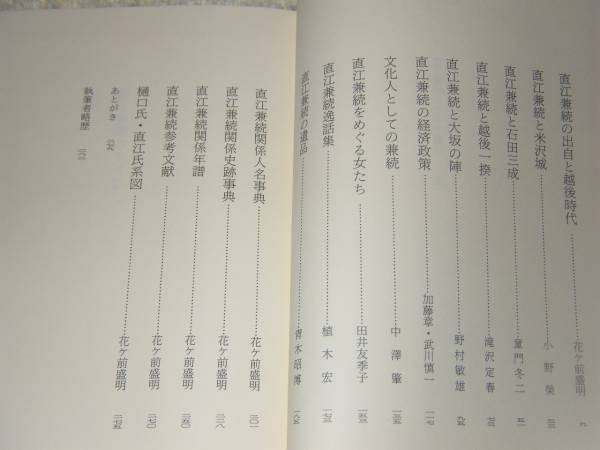 直江兼続の出自と越後時代……花ケ前盛明 九
直江兼続と米沢城……小野榮
直江兼続と石田三成……童門冬二
直江兼続と越後一揆……滝沢定春
直江兼続と大坂の陣……野村敏雄
直江兼続の経済政策……加藤章・武川慎一
文化人としての兼続……中澤肇
直江兼続をめぐる女たち……田井友季子
直江兼続逸話集……植木宏
直江兼続の遺品……青木昭博
直江兼続関係人名事典……花ケ前盛明 二〇一
直江兼続関係史跡事典……花ケ前盛明
直江兼続関係年譜……花ケ前盛明
直江兼続参考文献……花ケ前盛明
樋口氏・直江氏系図……花ケ前盛明
あとがき
執筆者略歴